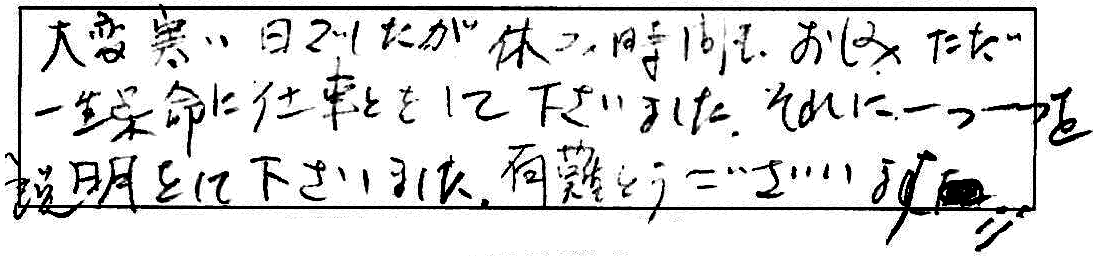 大変寒い日でしたが休み時間もおしみただ
一生懸命に仕事をして下さいました。それに一つ一つを
説明をして下さいました。有難とうございます